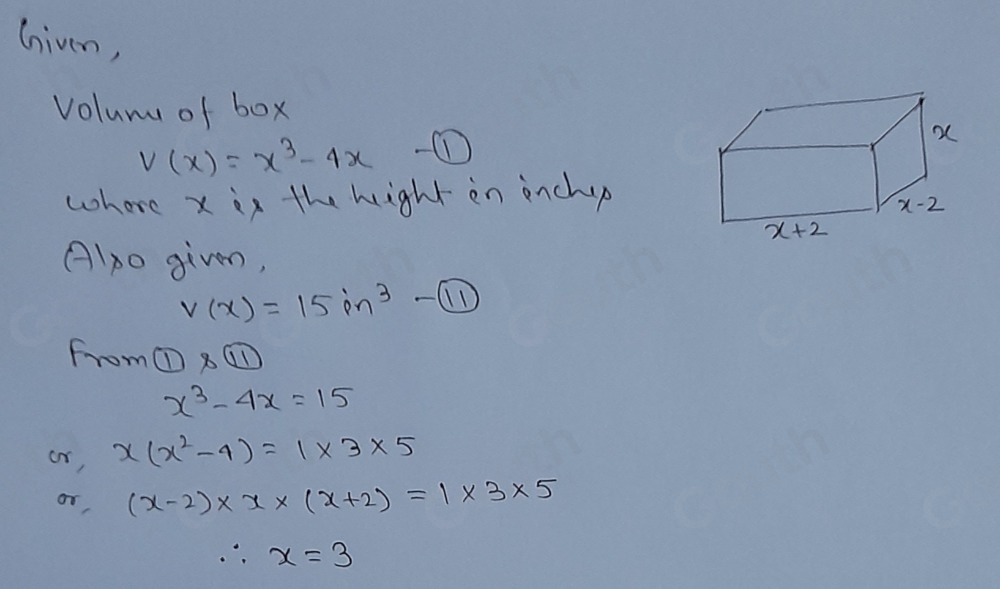 Given,
Volume of box
V(x) = x³ - 4x - ①
where x is the height in inches
x
x-2
x+2
Also given,
V(x) = 15 in³ - ⑪
From ① & ⑪
x³ - 4x = 15
or, x(x² - 4) = 1 × 3 × 5
or, (x-2) × x × (x+2) = 1 × 3 × 5
∴ x = 3